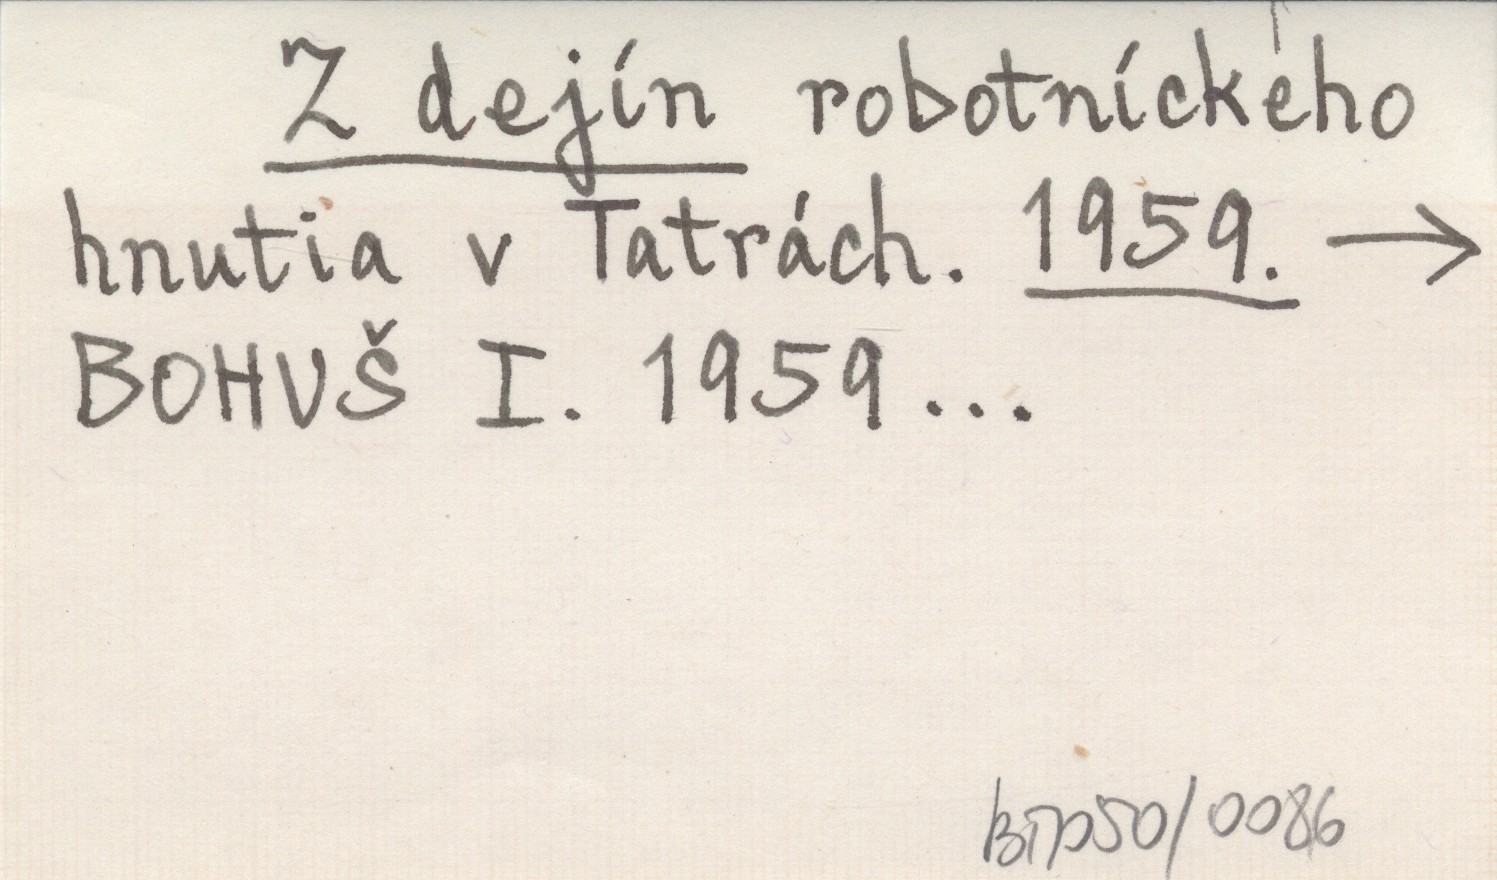 Z dejín robotníckého
hnutia v Tatrách. 1959. →
BOHUŠ I. 1959...